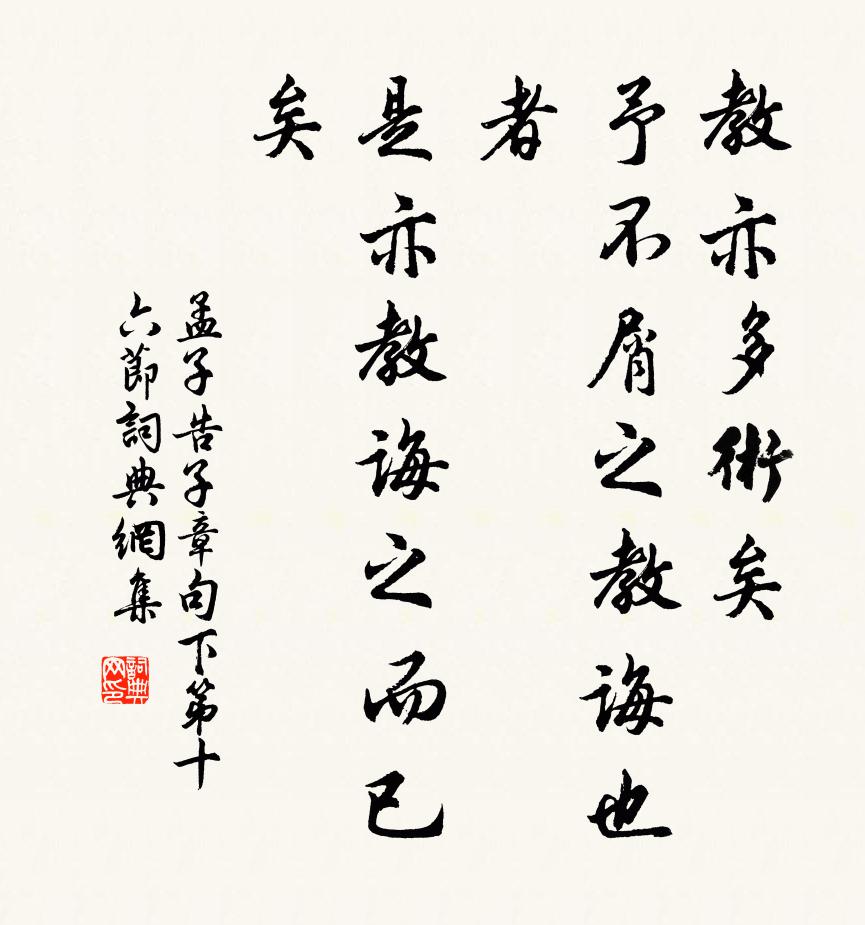 教亦多術矣
予不屑之教誨也
者
是亦教誨之而已
矣
孟子告子章句下第十
六節詞典網集
詞典网印